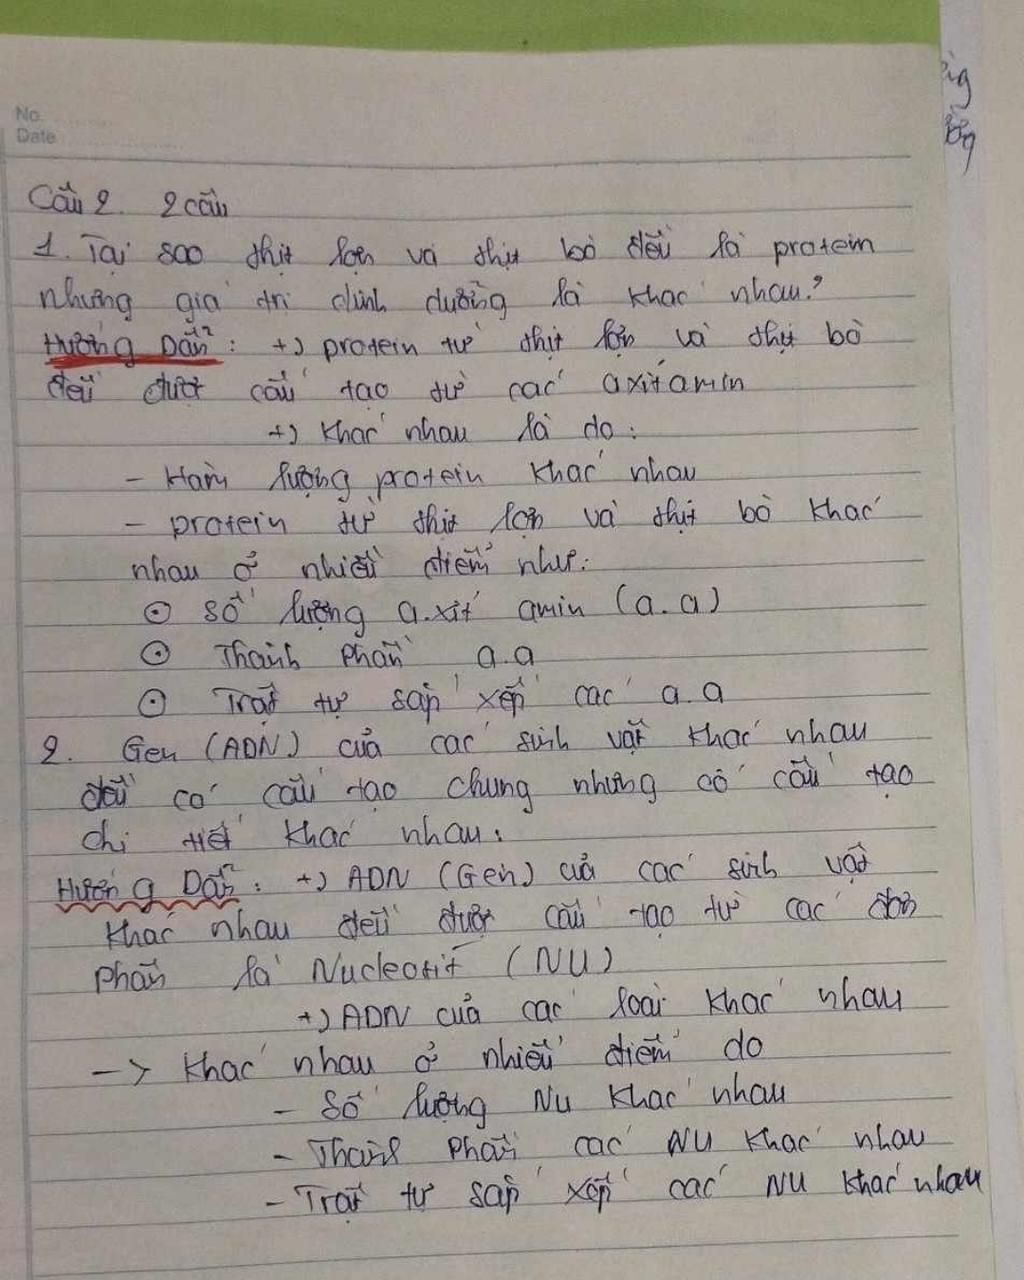 No.
Date
Câu 2. 2 câu
1. Tại sao thịt lợn và thịt bò đều là protein
nhưng giá trị dinh dưỡng là khác nhau?
Hướng Dẫn: +) protein từ thịt lợn và thịt bò
đều được cấu tạo từ các axitamin
+) Khác nhau là do:
- Hàm lượng protein khác nhau
- protein từ thịt lợn và thịt bò khác
nhau ở nhiều điểm như:
⊙ Số lượng a.xit amin (a.a)
⊙ Thành phần a.a
⊙ Trật tự sắp xếp các a.a
2. Gen (ADN) của các sinh vật khác nhau
đều có cấu tạo chung nhưng có cấu tạo
chi tiết khác nhau:
Hướng Dẫn: +) ADN (Gen) của các sinh vật
khác nhau đều được cấu tạo từ các đơn
phân là Nucleotit (NU)
+) ADN của các loài khác nhau
-> khác nhau ở nhiều điểm do
- Số lượng Nu khác nhau
- Thành phần các NU khác nhau
- Trật tự sắp xếp các NU khác nhau